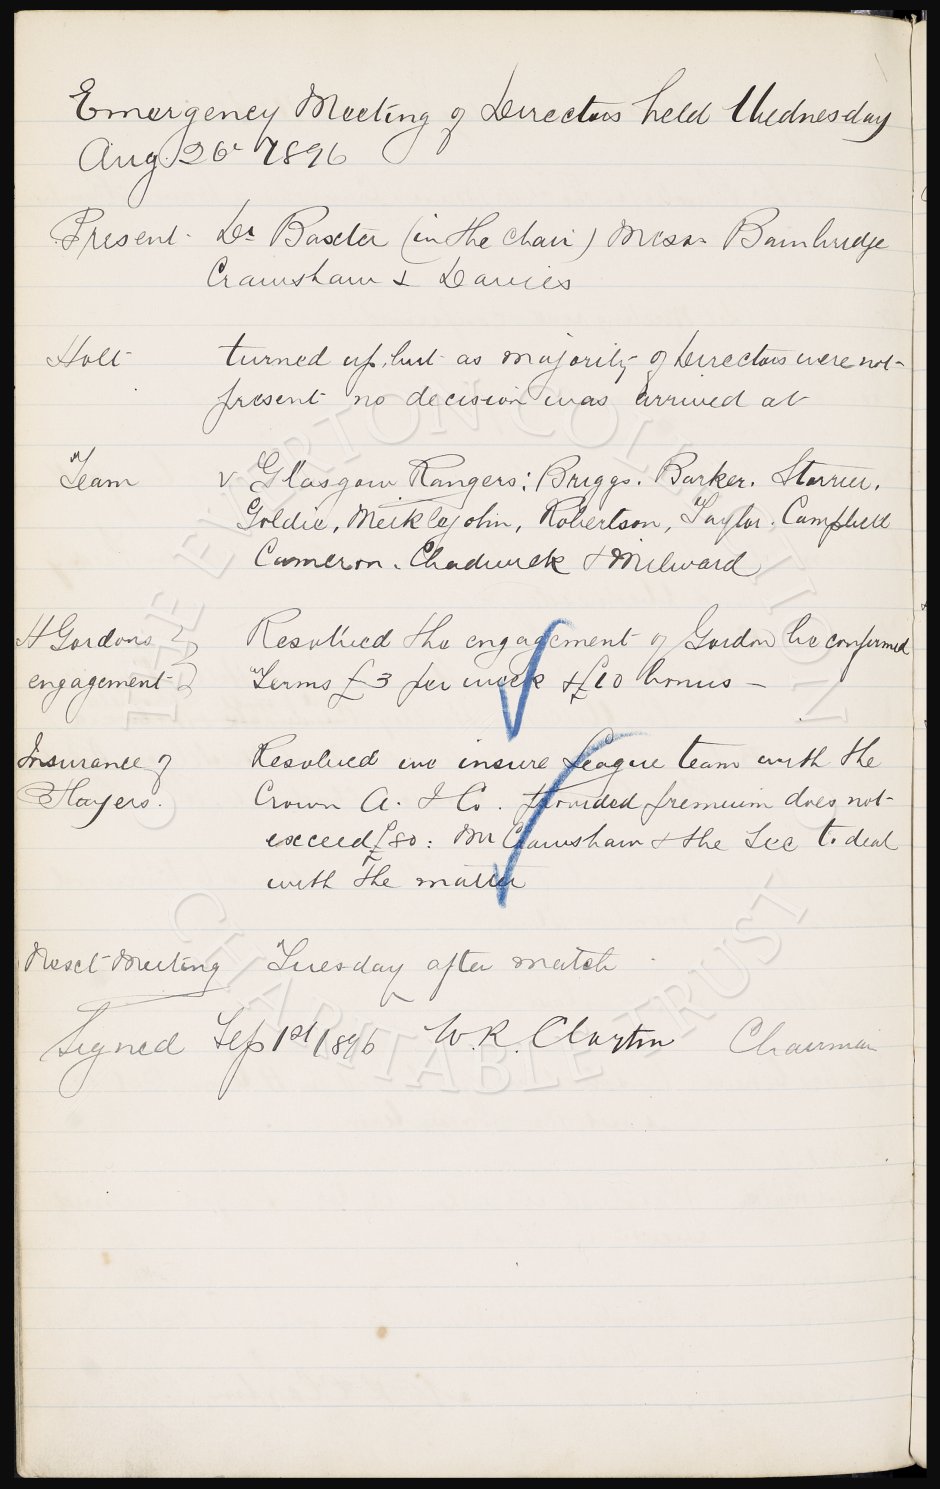 Emergency Meeting of Directors held Wednesday
Aug. 26 1896
Present - Dr Baxter (in the chair) Messrs Bainbridge
Crawshaw & Davies
Holt turned up, but as majority of Directors were not
present no decision was arrived at
Team v Glasgow Rangers: Briggs. Barker. Storrier.
Goldie, Meiklejohn, Robertson, Taylor. Campbell
Cameron. Chadwick & Milward
H Gordons Resolved the engagement of Gordon be confirmed
engagement Terms £3 per week & £10 bonus -
Insurance of Resolved we insure League team with the
Players. Crown A. I Co. provided premium does not
exceed £80: Mr Crawshaw & the Sec to deal
with the matter
Next Meeting Tuesday after match
Signed Sep 1st 1896 W. R. Clayton Chairman
THE EVERTON COLLECTION
CHARITABLE TRUST